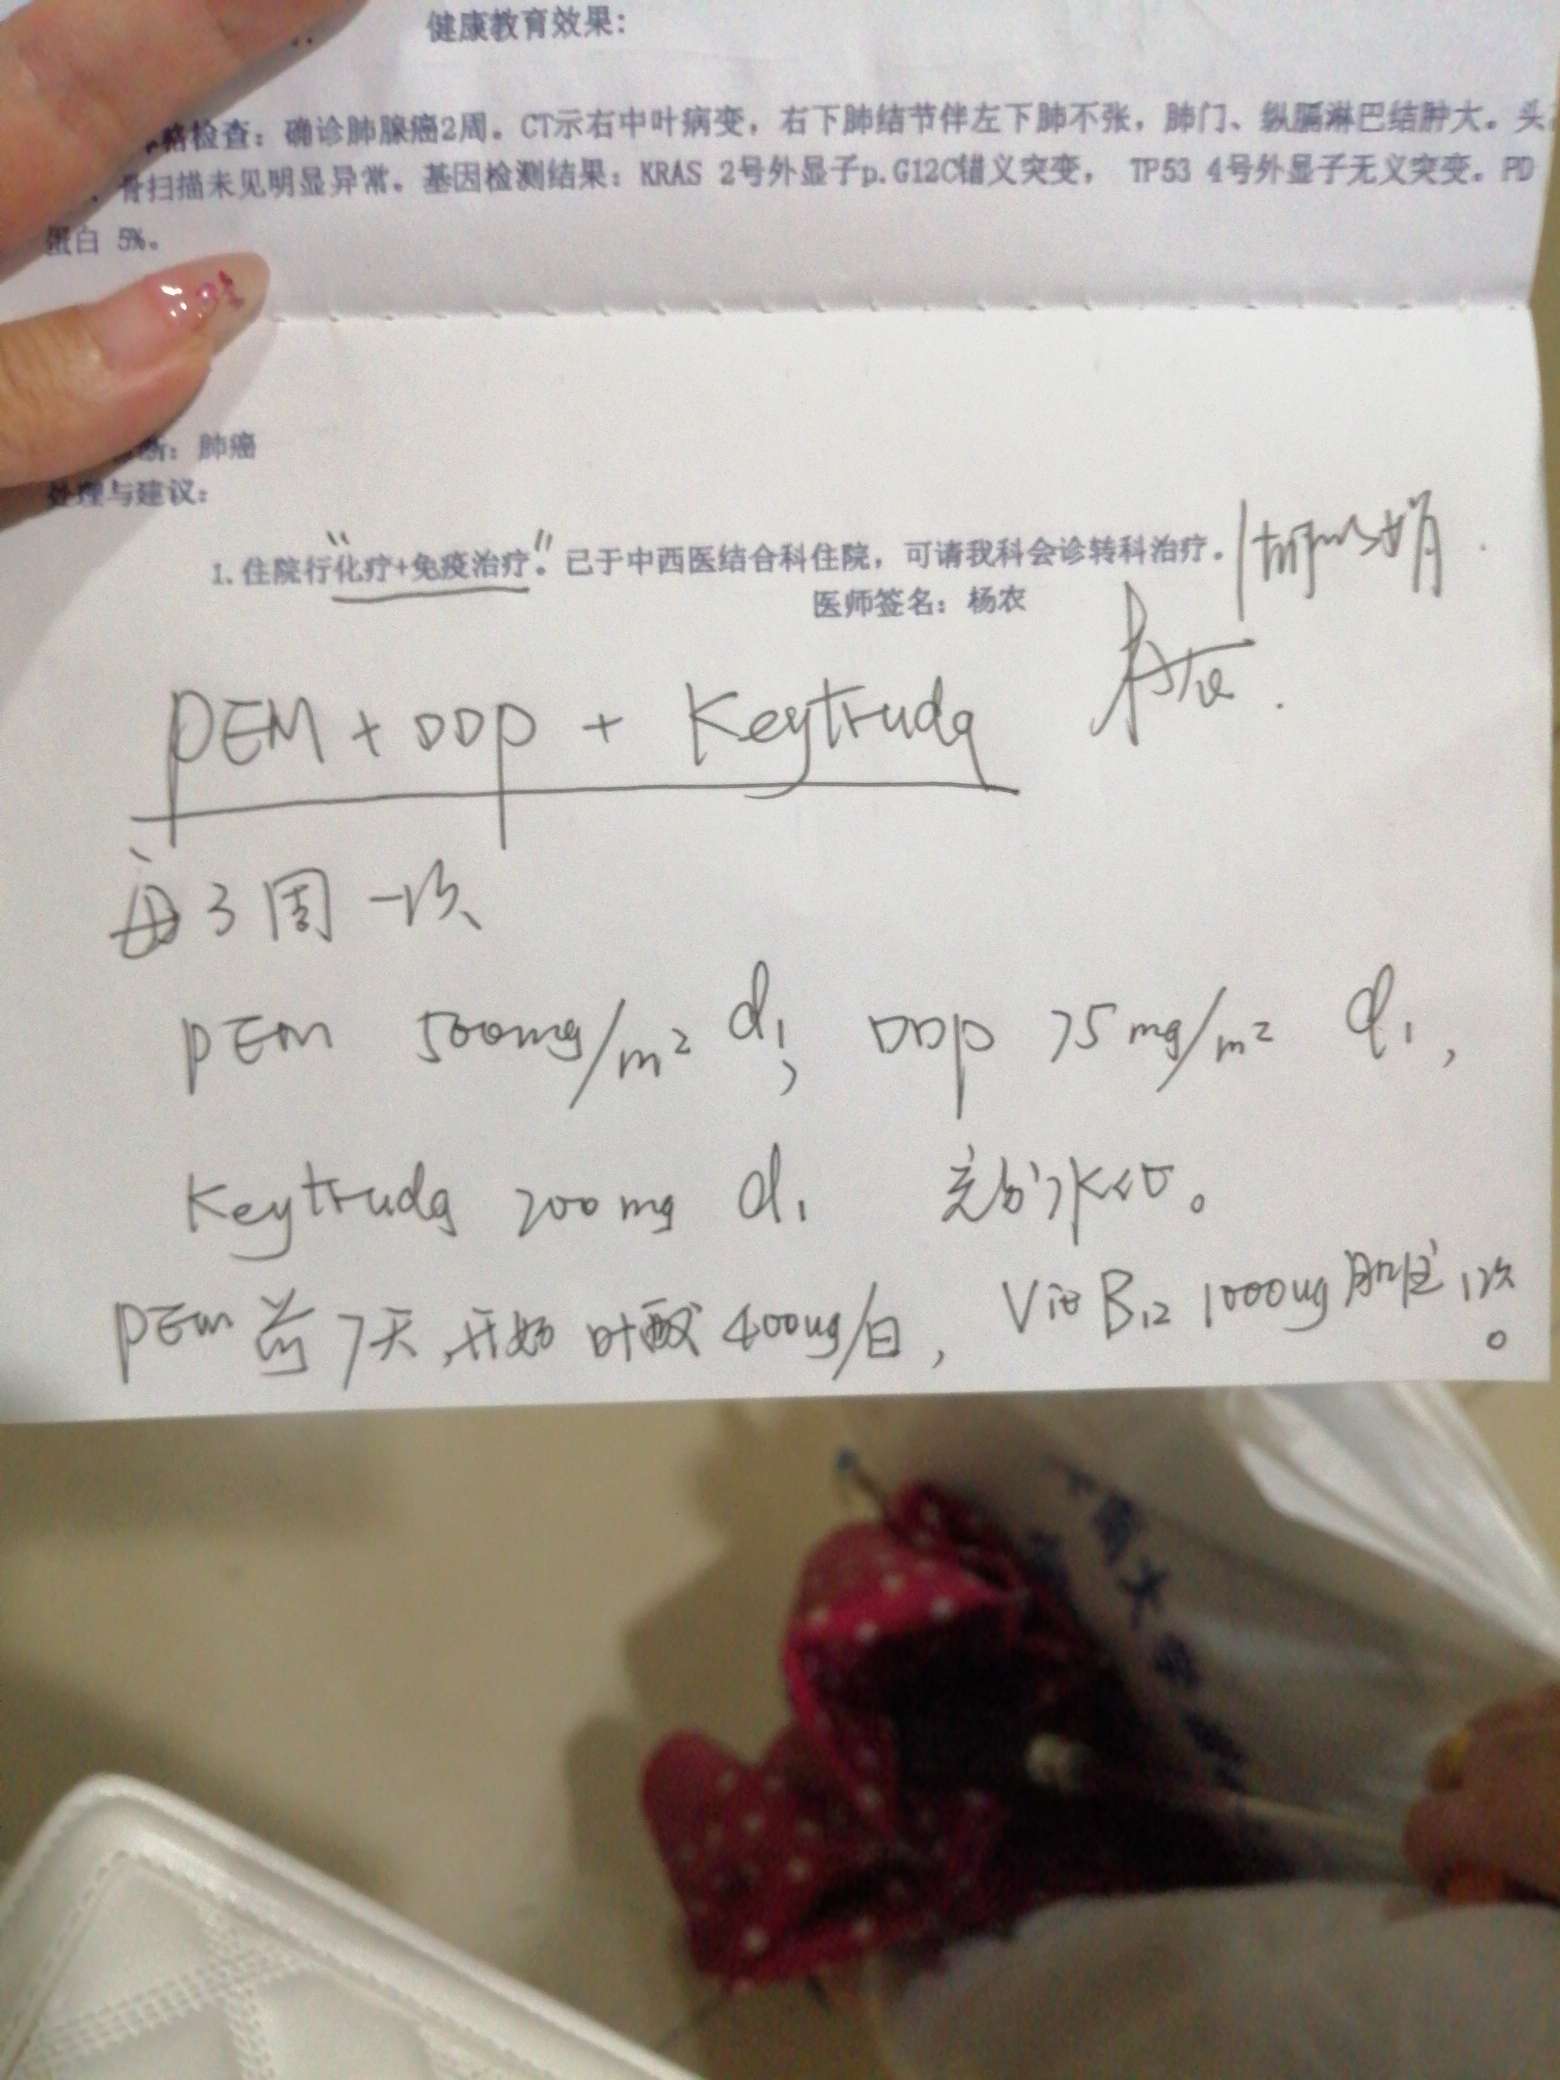 健康教育效果:
格检查: 确诊肺腺癌2周。CT示右中叶病变, 右下肺结节伴左下肺不张, 肺门、纵膈淋巴结肿大。头
骨扫描未见明显异常。基因检测结果: KRAS 2号外显子p.G12C错义突变, TP53 4号外显子无义突变。PD
蛋白 5%。
断: 肺癌
处理与建议:
1. 住院行“化疗+免疫治疗”。已于中西医结合科住院, 可请我科会诊转科治疗。
医师签名: 杨农
PEM + DDP + Keytruda
每3周一次
PEM 500mg/m² d1, DDP 75mg/m² d1,
Keytruda 200mg d1 充分水化。
PEM 前7天, 开始 叶酸 400ug/日, Vit B12 1000ug 肌注 1次。